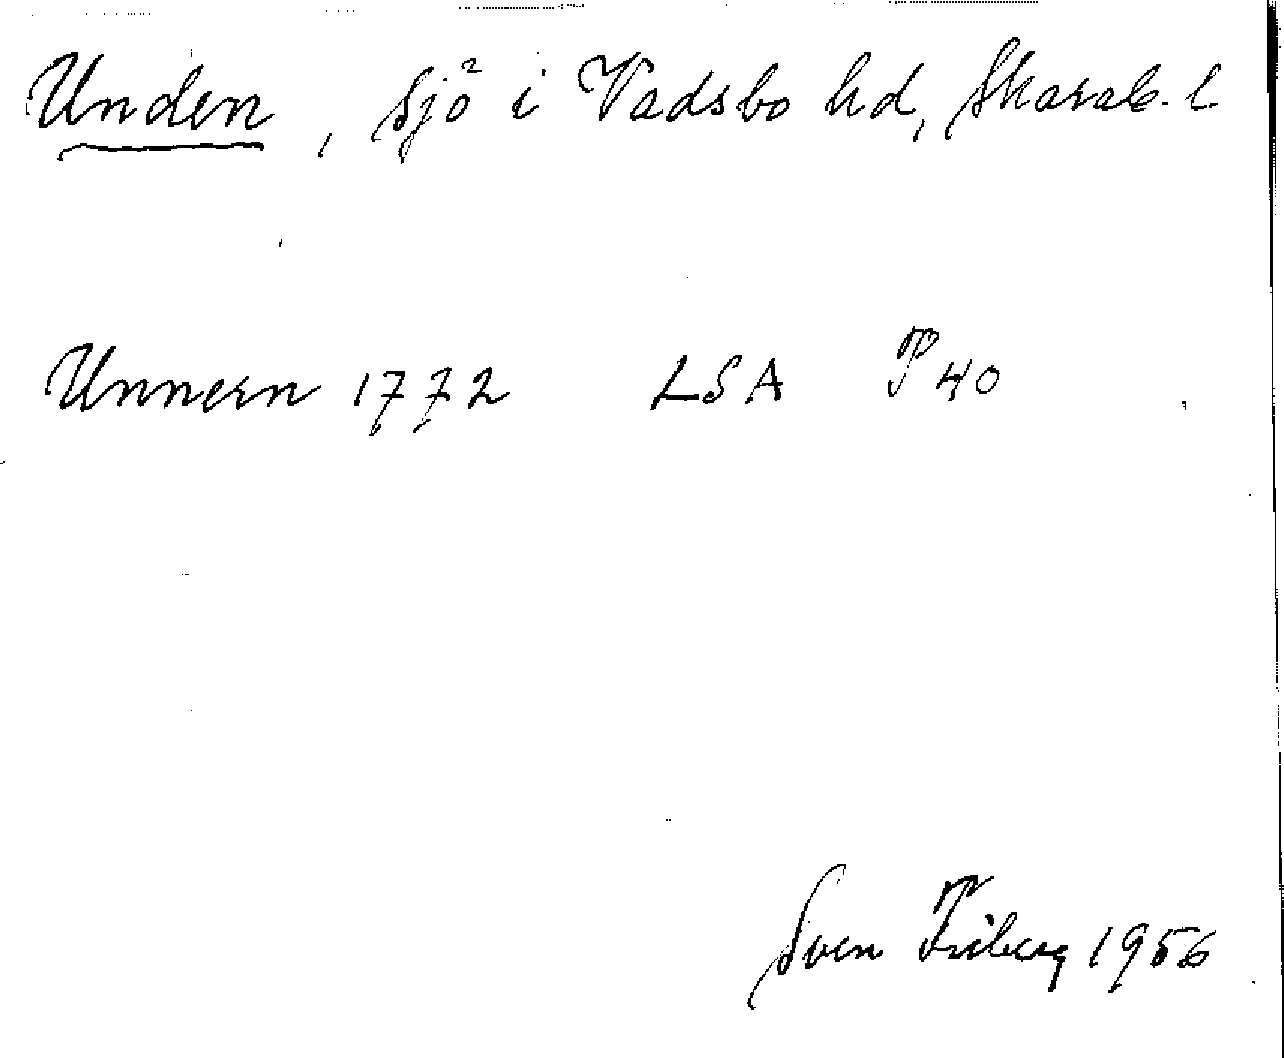 Unden, sjö i Vadsbo hd, Skarab. l.
Unnern 1772 LSA P 40
Sven Friberg 1956